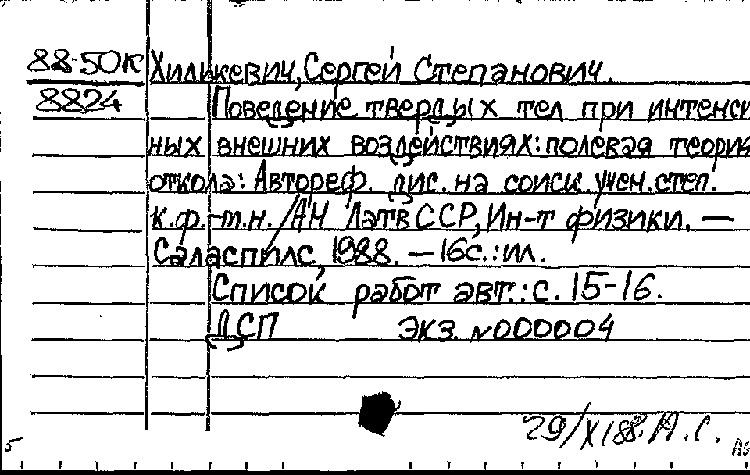 88-50К Хилькевич, Сергей Степанович.
8824 Поведение твердых тел при интенси
ных внешних воздействиях: полевая теория
откола: Автореф. дис. на соиск. учен. степ.
к.ф.-т.н. / АН ЛатвССР, Ин-т физики. —
Саласпилс, 1988. — 16с.: ил.
Список работ авт.: с. 15-16.
ДСП экз. №000004
29/XI88. А.С.